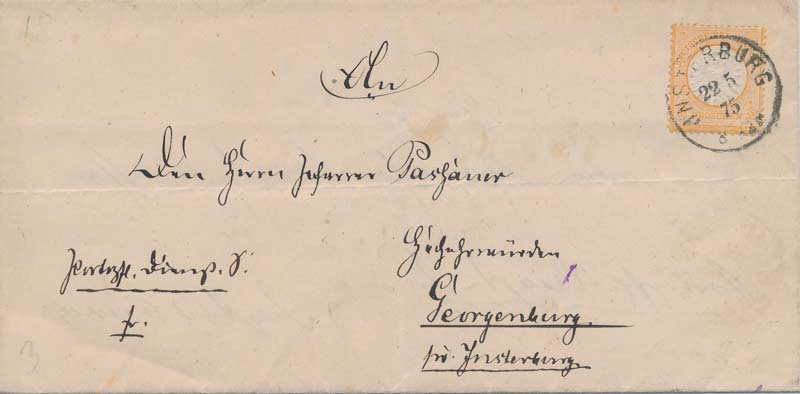 An
Den Herrn Pfarrer Paßauer
Hochehrwürden
Georgenburg.
pr. Insterburg.
Portopfl. Dienst. S.
fr.
INSTERBURG
22 5
75